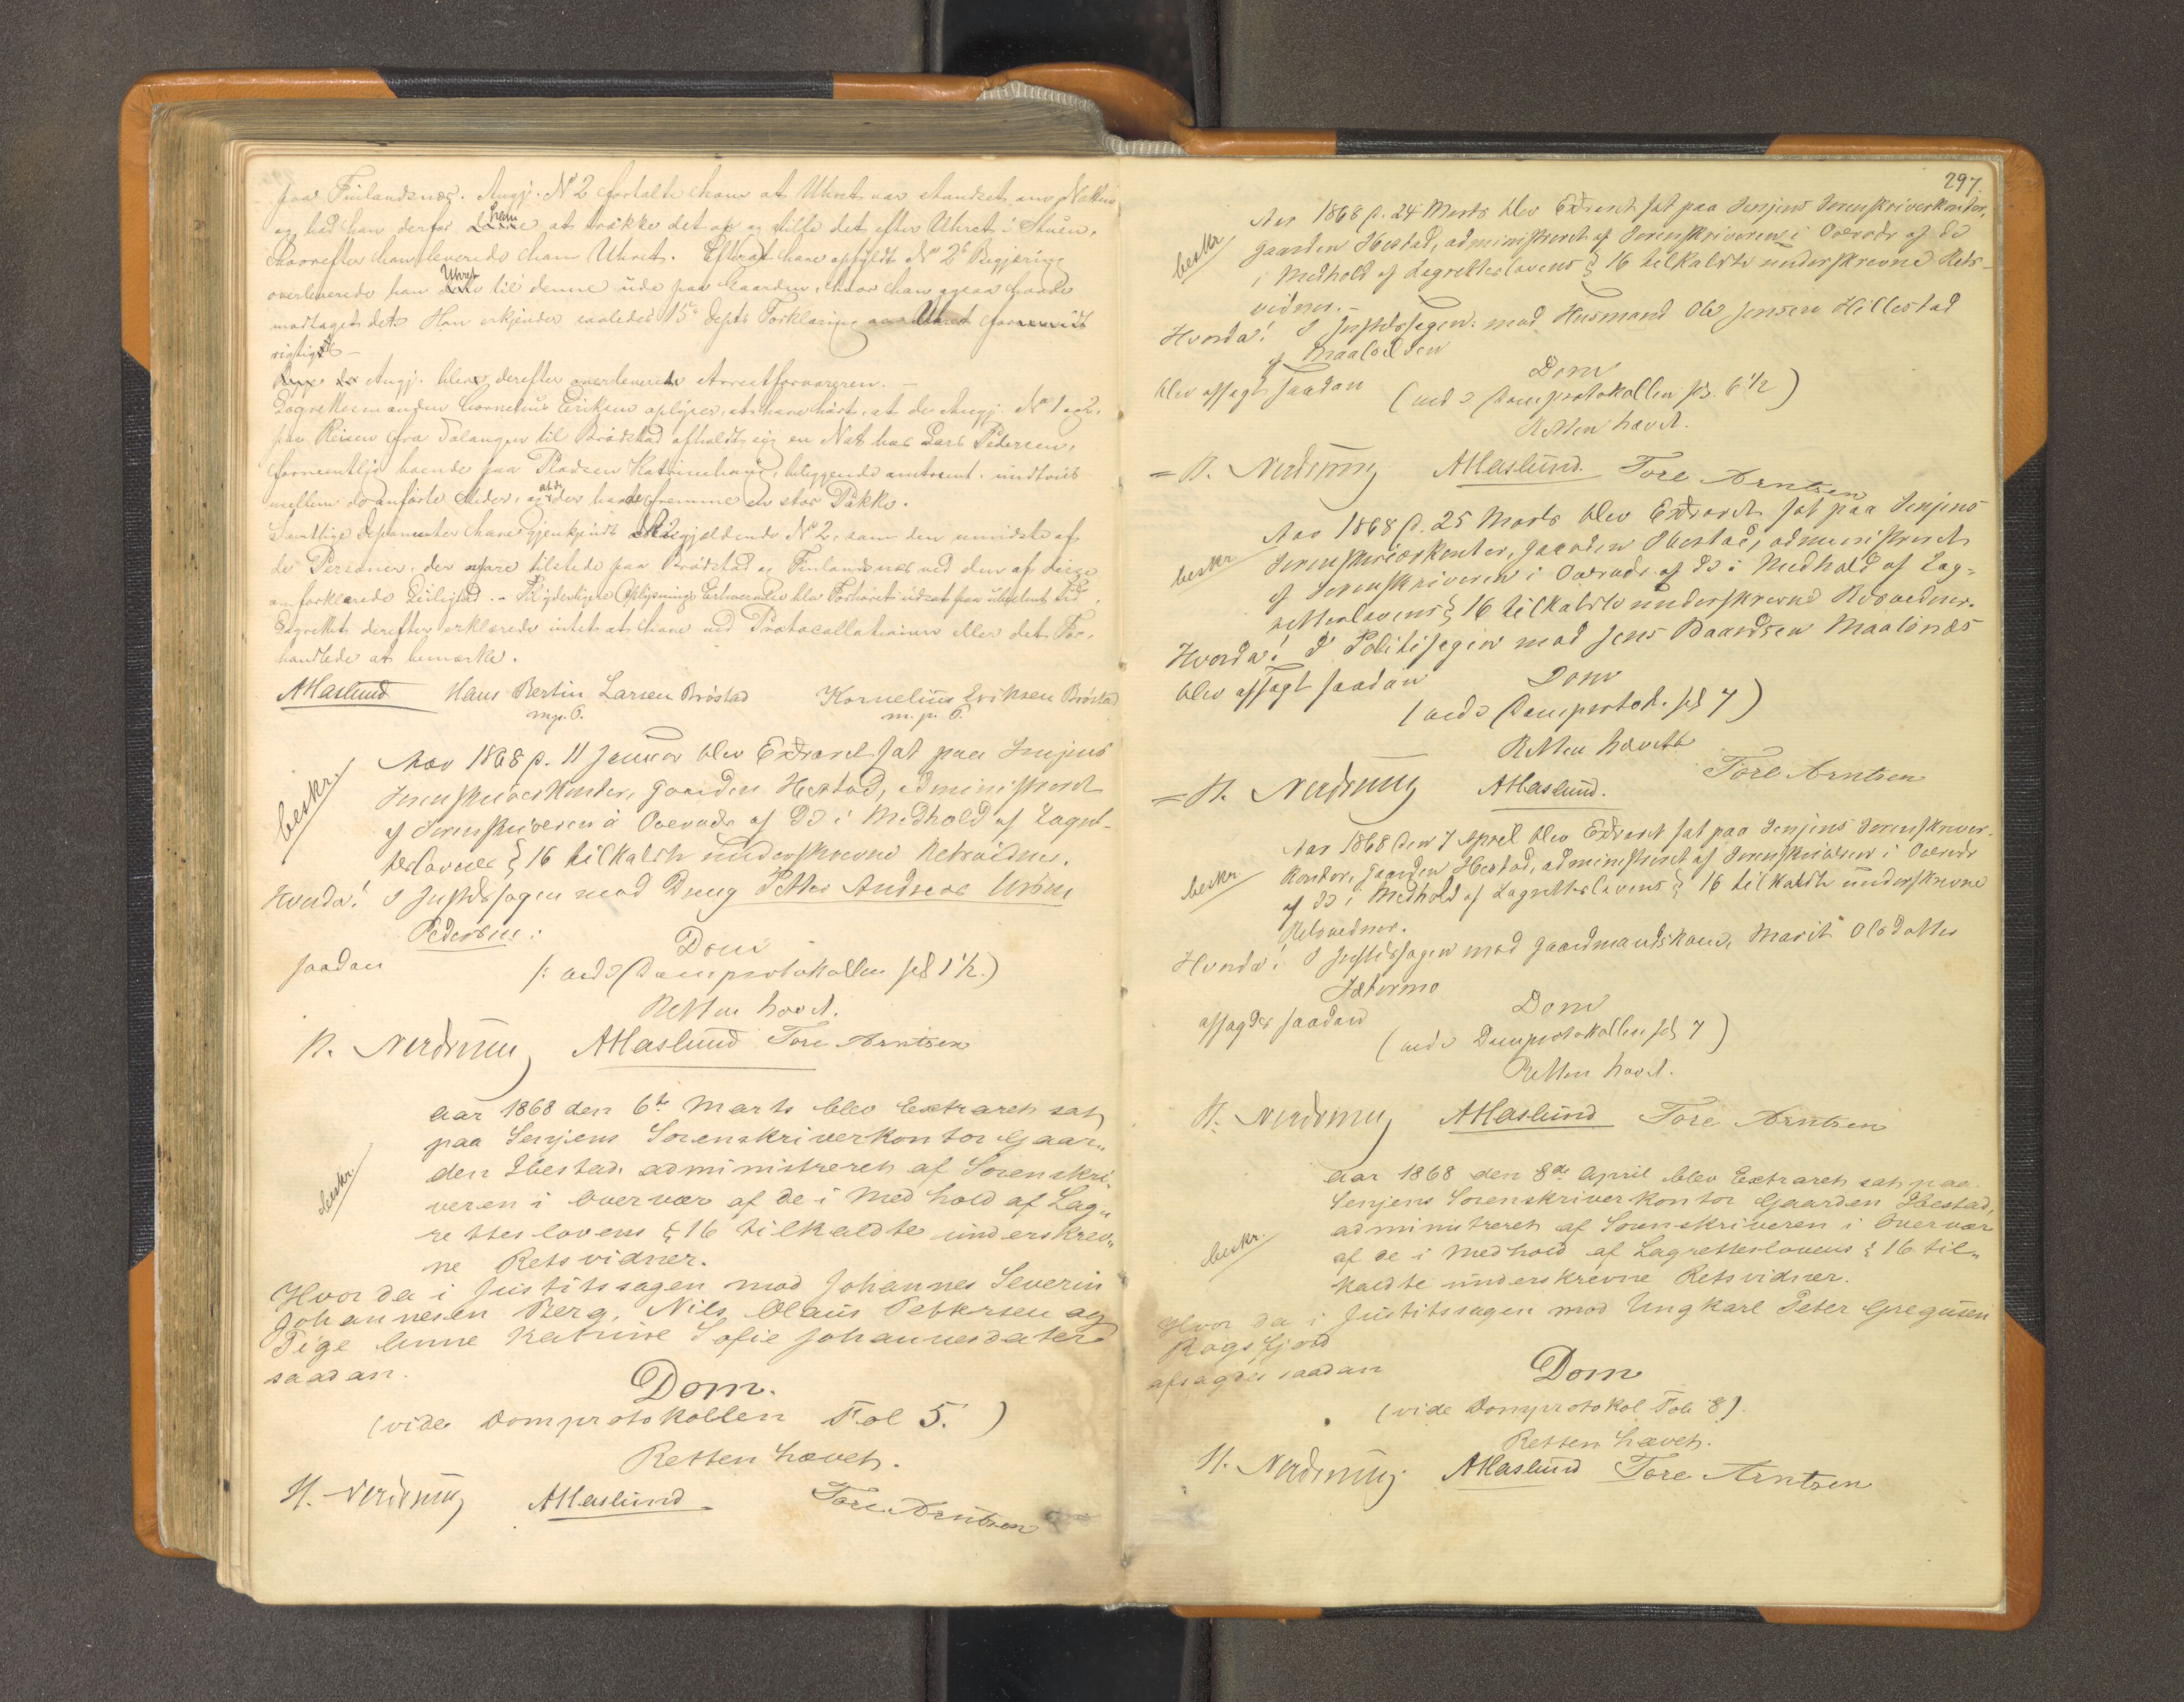 paa Finlandsnæs. Angj. No 2 fortalte ham at Uhret var standset om Natten
og bad ham derfor ham at trække det op og stille det efter Uhret i Stuen,
hvorefter han leverede ham Uhret. Efterat have opfyldt No 2s Begjæring
overleverede han Uhret til denne ude paa Gaarden, hvor han ogsaa havde
modtaget det. Han erkjender saaledes 15de Depts Forklaring om Uhret forsaavidt
rigtigt. –
Angj. blev derefter overleveret Arrestforvareren. –
Lagrettesmanden Cornelius Eriksen oplyser, at have hørt, at de Angj. No 1 og 2,
paa Reisen fra Salangen til Brødstad opholdt sig en Nat hos Lars Pedersen,
fornemtlig boende paa Pladsen Katrinehaug, beliggende omtrent midtveis
mellem de anførte Steder, og at de der havde fremme en stor Pakke.
Samtlige Deponenter have gjenkjendt Angjeldende No 2, som den mindste af
de Personer, der vare tilstede paa Brødstad og Finlandsnæs ved den af disse
om forklarede Leilighed. – Til yderligere Oplysnings Erhvervelse blev Forhøret udsat paa ubestemt Tid.
Lagrettet derefter erklærede intet at have ved Protocollationen eller det For-
handlede at bemærke.
AHaslund Hans Bertin Larsen Brøstad Kornelius Eriksen Brøstad
m. p. P. m. p. P.
beskr. Aar 1868 d. 11 Januar blev Extraret sat paa Senjens
Sorenskriverkontor, Gaarden Ibestad, administreret
af Sorenskriveren i Overvær af de i Medhold af Lagret-
teslovens § 16 tilkaldte underskrevne Retsvidner.
Hvorda! I Justitssagen mod Dreng Petter Andreas Urom
Pedersen:
saadan Dom
(: vide Domprotokollen fol 1 1/2.)
Retten hævet.
H. Nerdrum AHaslund Tore Arntsen
beskr. Aar 1868 den 6te Marts blev Extraret sat
paa Senjens Sorenskriverkontor Gaar„
den Ibestad, administreret af Sorenskri„
veren i Overvær af de i Medhold af Lag„
retteslovens § 16 tilkaldte underskrev„
ne Retsvidner.
Hvor da i Justitssagen mod Johannes Severin
Johannesen Berg, Nils Olaus Pettersen og
Pige Anne Katrine Sofie Johannesdater
saadan.
Dom.
(vide Domprotokollen Fol 5.)
Retten hævet.
H. Nerdrum AHaslund Tore Arntsen
297.
beskr Aar 1868 d. 24 Marts blev Extraret sat paa Senjens Sorenskriverkontor,
Gaarden Ibestad, administreret af Sorenskriveren i Overvær af de
i Medhold af Lagretteslovens § 16 tilkaldte underskrevne Rets-
vidner. –
Hvorda! I Justitssagen mod Husmand Ole Jensen Hillestad
af Maalselven
blev afsagt saadan Dom
(vide Domprotokollen fol. 6 1/2)
Retten hævet.
= H. Nerdrum AHaslund. Tore Arntsen
beskr Aar 1868 d. 25 Marts blev Extraret sat paa Senjens
Sorenskriverkontor, Gaarden Ibestad, administreret
af Sorenskriveren i Overvær af de i Medhold af Lag=
retteslovens § 16 tilkaldte underskrevne Retsvidner.
Hvorda! I Politisagen mod Jens Baardsen Maalsnæs
blev afsagt saadan Dom
(vide Domprotok. fol 7)
Retten hævet
= H. Nerdrum AHaslund. Tore Arntsen
beskr Aar 1868 den 7 April blev Extraret sat paa Senjens Sorenskriver-
kontor, Gaarden Ibestad, administreret af Sorenskriveren i Overvær
af de i Medhold af Lagretteslovens § 16 tilkaldte underskrevne
Retsvidner.
Hvorda! I Justitssagen mod Gaardmandskone Marit Olsdatter
Sætermo
afsagdes saadan Dom
(vide Domprotokollen fol 7)
Retten hævet.
H. Nerdrum AHaslund Tore Arntsen
beskr. Aar 1868 den 8de April blev Extraret sat paa
Senjens Sorenskriverkontor Gaarden Ibestad,
administreret af Sorenskriveren i Overvær
af de i Medhold af Lagretteslovens § 16 til„
kaldte underskrevne Retsvidner.
Hvor da i Justitssagen mod Ungkarl Peter Gregusen
Rogsfjord
afsagdes saadan Dom
(vide Domprotokol Fol 8).
Retten hævet.
H. Nerdrum AHaslund Tore Arntsen